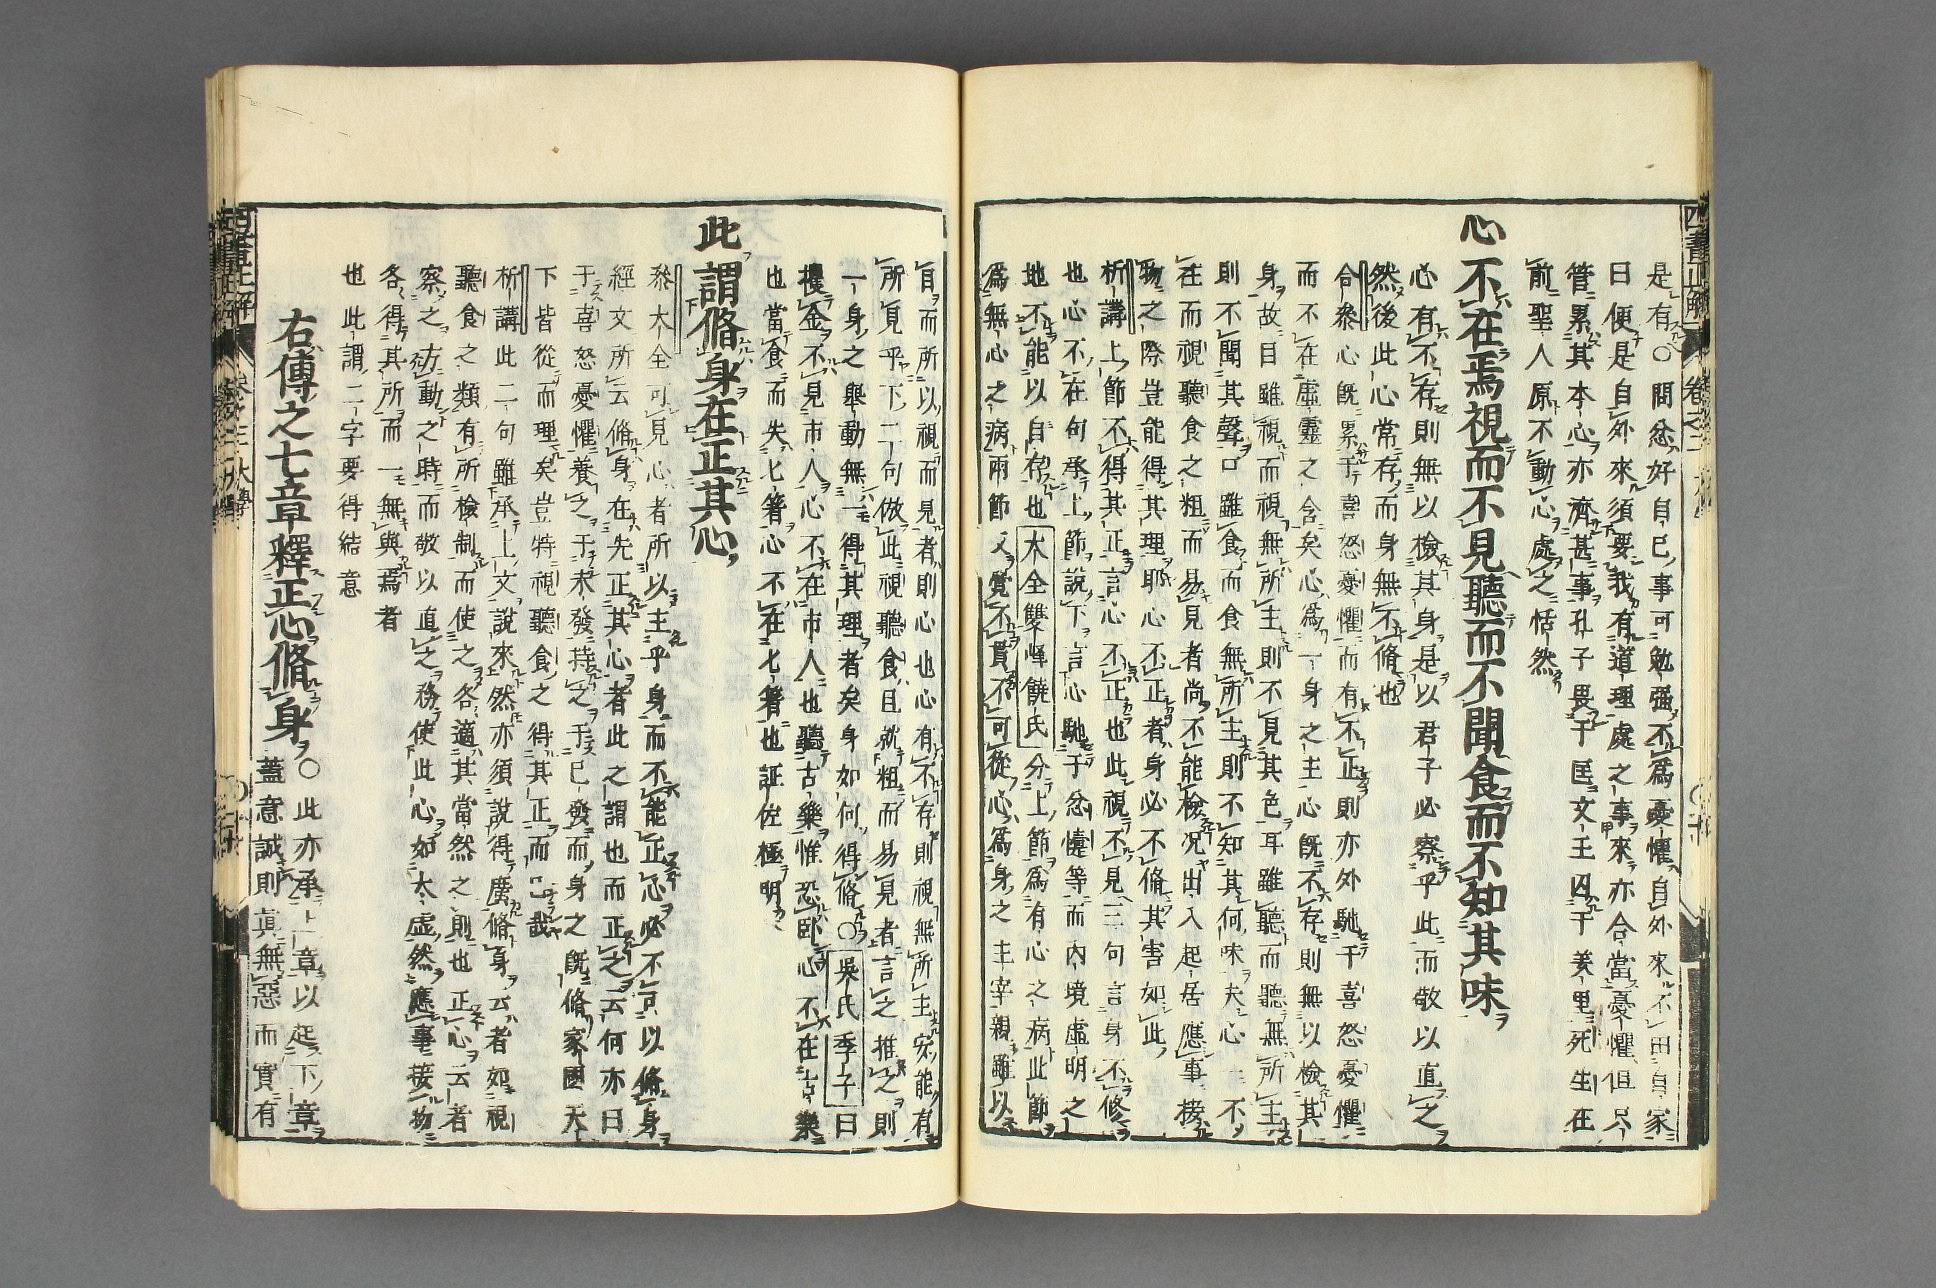 是有○問忿好自己事可勉强不爲憂懼自外來不由自家
曰便是自外來須要我有道理處之事來亦合當憂懼但只
管累其本心亦濟甚事孔子畏于匡文王囚于羑里死生在
前聖人原不動心處之恬然
心不在焉視而不見聽而不聞食而不知其味
心有不存則無以檢其身是以君子必察乎此而敬以直之
然後此心常存而身無不脩也
合參心旣累于喜怒憂懼而有不正則亦外馳于喜怒憂懼
而不在虛靈之舍矣心爲一身之主心旣不存則無以檢其
身故目雖視而視無所主則不見其色耳雖聽而聽無所主
則不聞其聲口雖食而食無所主則不知其何味夫心一不
在而視聽食之粗而易見者尚不能檢况出入起居應事接
物之際豈能得其理耶心不正者身必不脩其害如此
析講上節不得其正言心不正也此視不見三句言身不修
也心不在句承上節說下言心馳于忿懥等而內境虛明之
地不能以自存也大全雙峰饒氏分上節爲有心之病此節
爲無心之病兩節文覺不貫不可從心爲身之主宰親雖以
目而所以視而見者則心也心有不存則視無所主安能有
所見乎下二句倣此視聽食且就粗而易見者言之推之則
一身之舉動無一得其理者矣身如何得脩○吳氏季子曰
攫金不見市人心不在市人也聽古樂惟恐臥心不在古樂
也當食而失匕箸心不在匕箸也証佐極明
此謂脩身在正其心
叅大全可見心者所以主乎身而不能正心必不可以脩身
經文所云脩身在先正其心者此之謂也而正之云何亦曰
于喜怒憂懼養之于未發持之于已發而身之旣脩家國天
下皆從而理矣豈特視聽食之得其正而已哉
析講此二句雖承上文說來然亦須說得廣脩身云者如視
聽食之類有所檢制而使之各適其當然之則也正心云者
察之方動之時而敬以直之務使此心如太虛然應事接物
各得其所而一無與焉者
也此謂二字要得結意
右傳之七章釋正心脩身○此亦承上章以起下章
蓋意誠則眞無惡而實有